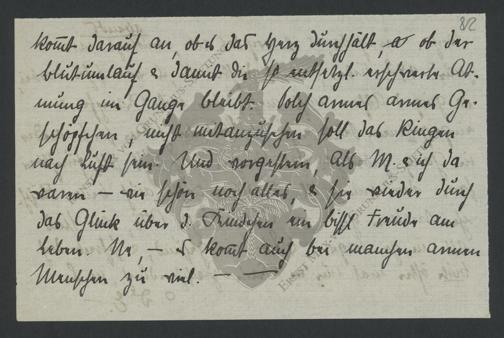 82
kommt darauf an, ob es das Herz durchhält, ob der
Blutumlauf & damit die so entsetzl. erschwerte At-
mung im Gange bleibt. Solch armes armes Ge-
schöpfchen, nicht mitanzusehen soll das Ringen
nach Luft sein. Und vorgestern, als M. & ich da
waren – wie schön noch alles, & sie wieder durch
das Glück über d. ein bissl Freude am
Leben. Ne, – es kommt auch bei manchen armen
Menschen zu viel. –